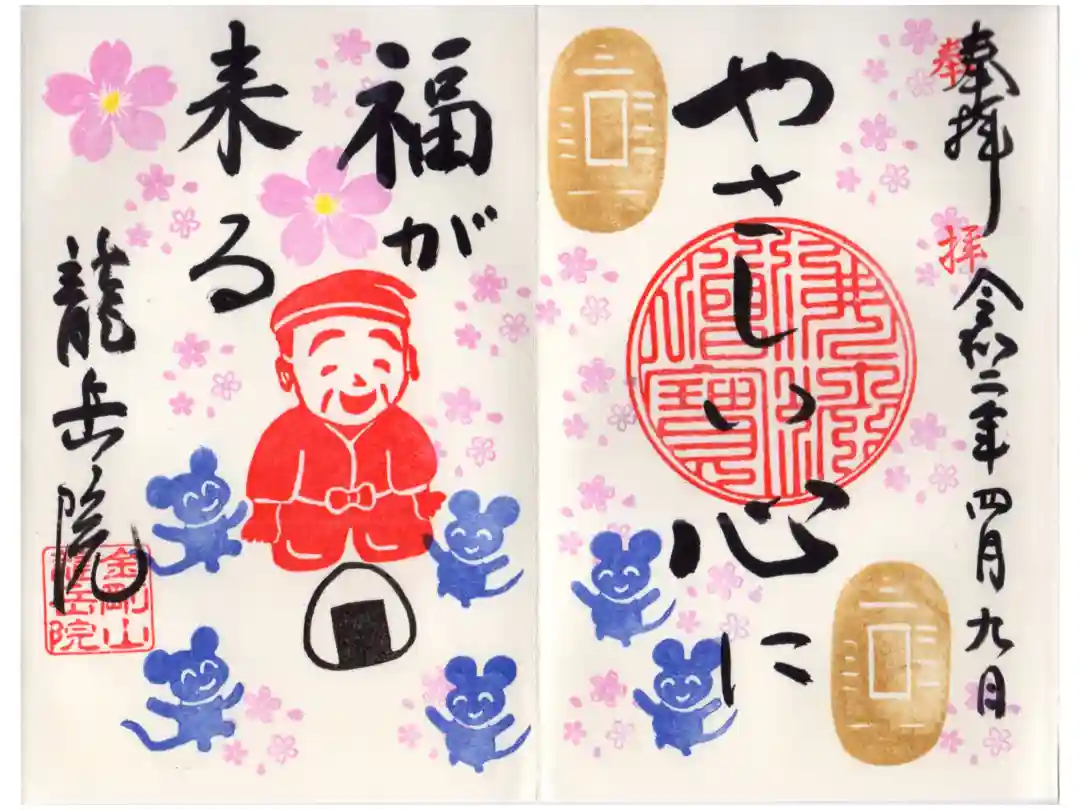 奉拝
奉拝
令和二年四月九日
やさしい心に
佛法僧寶
福が
来る
龍岳院
金剛山
龍岳院